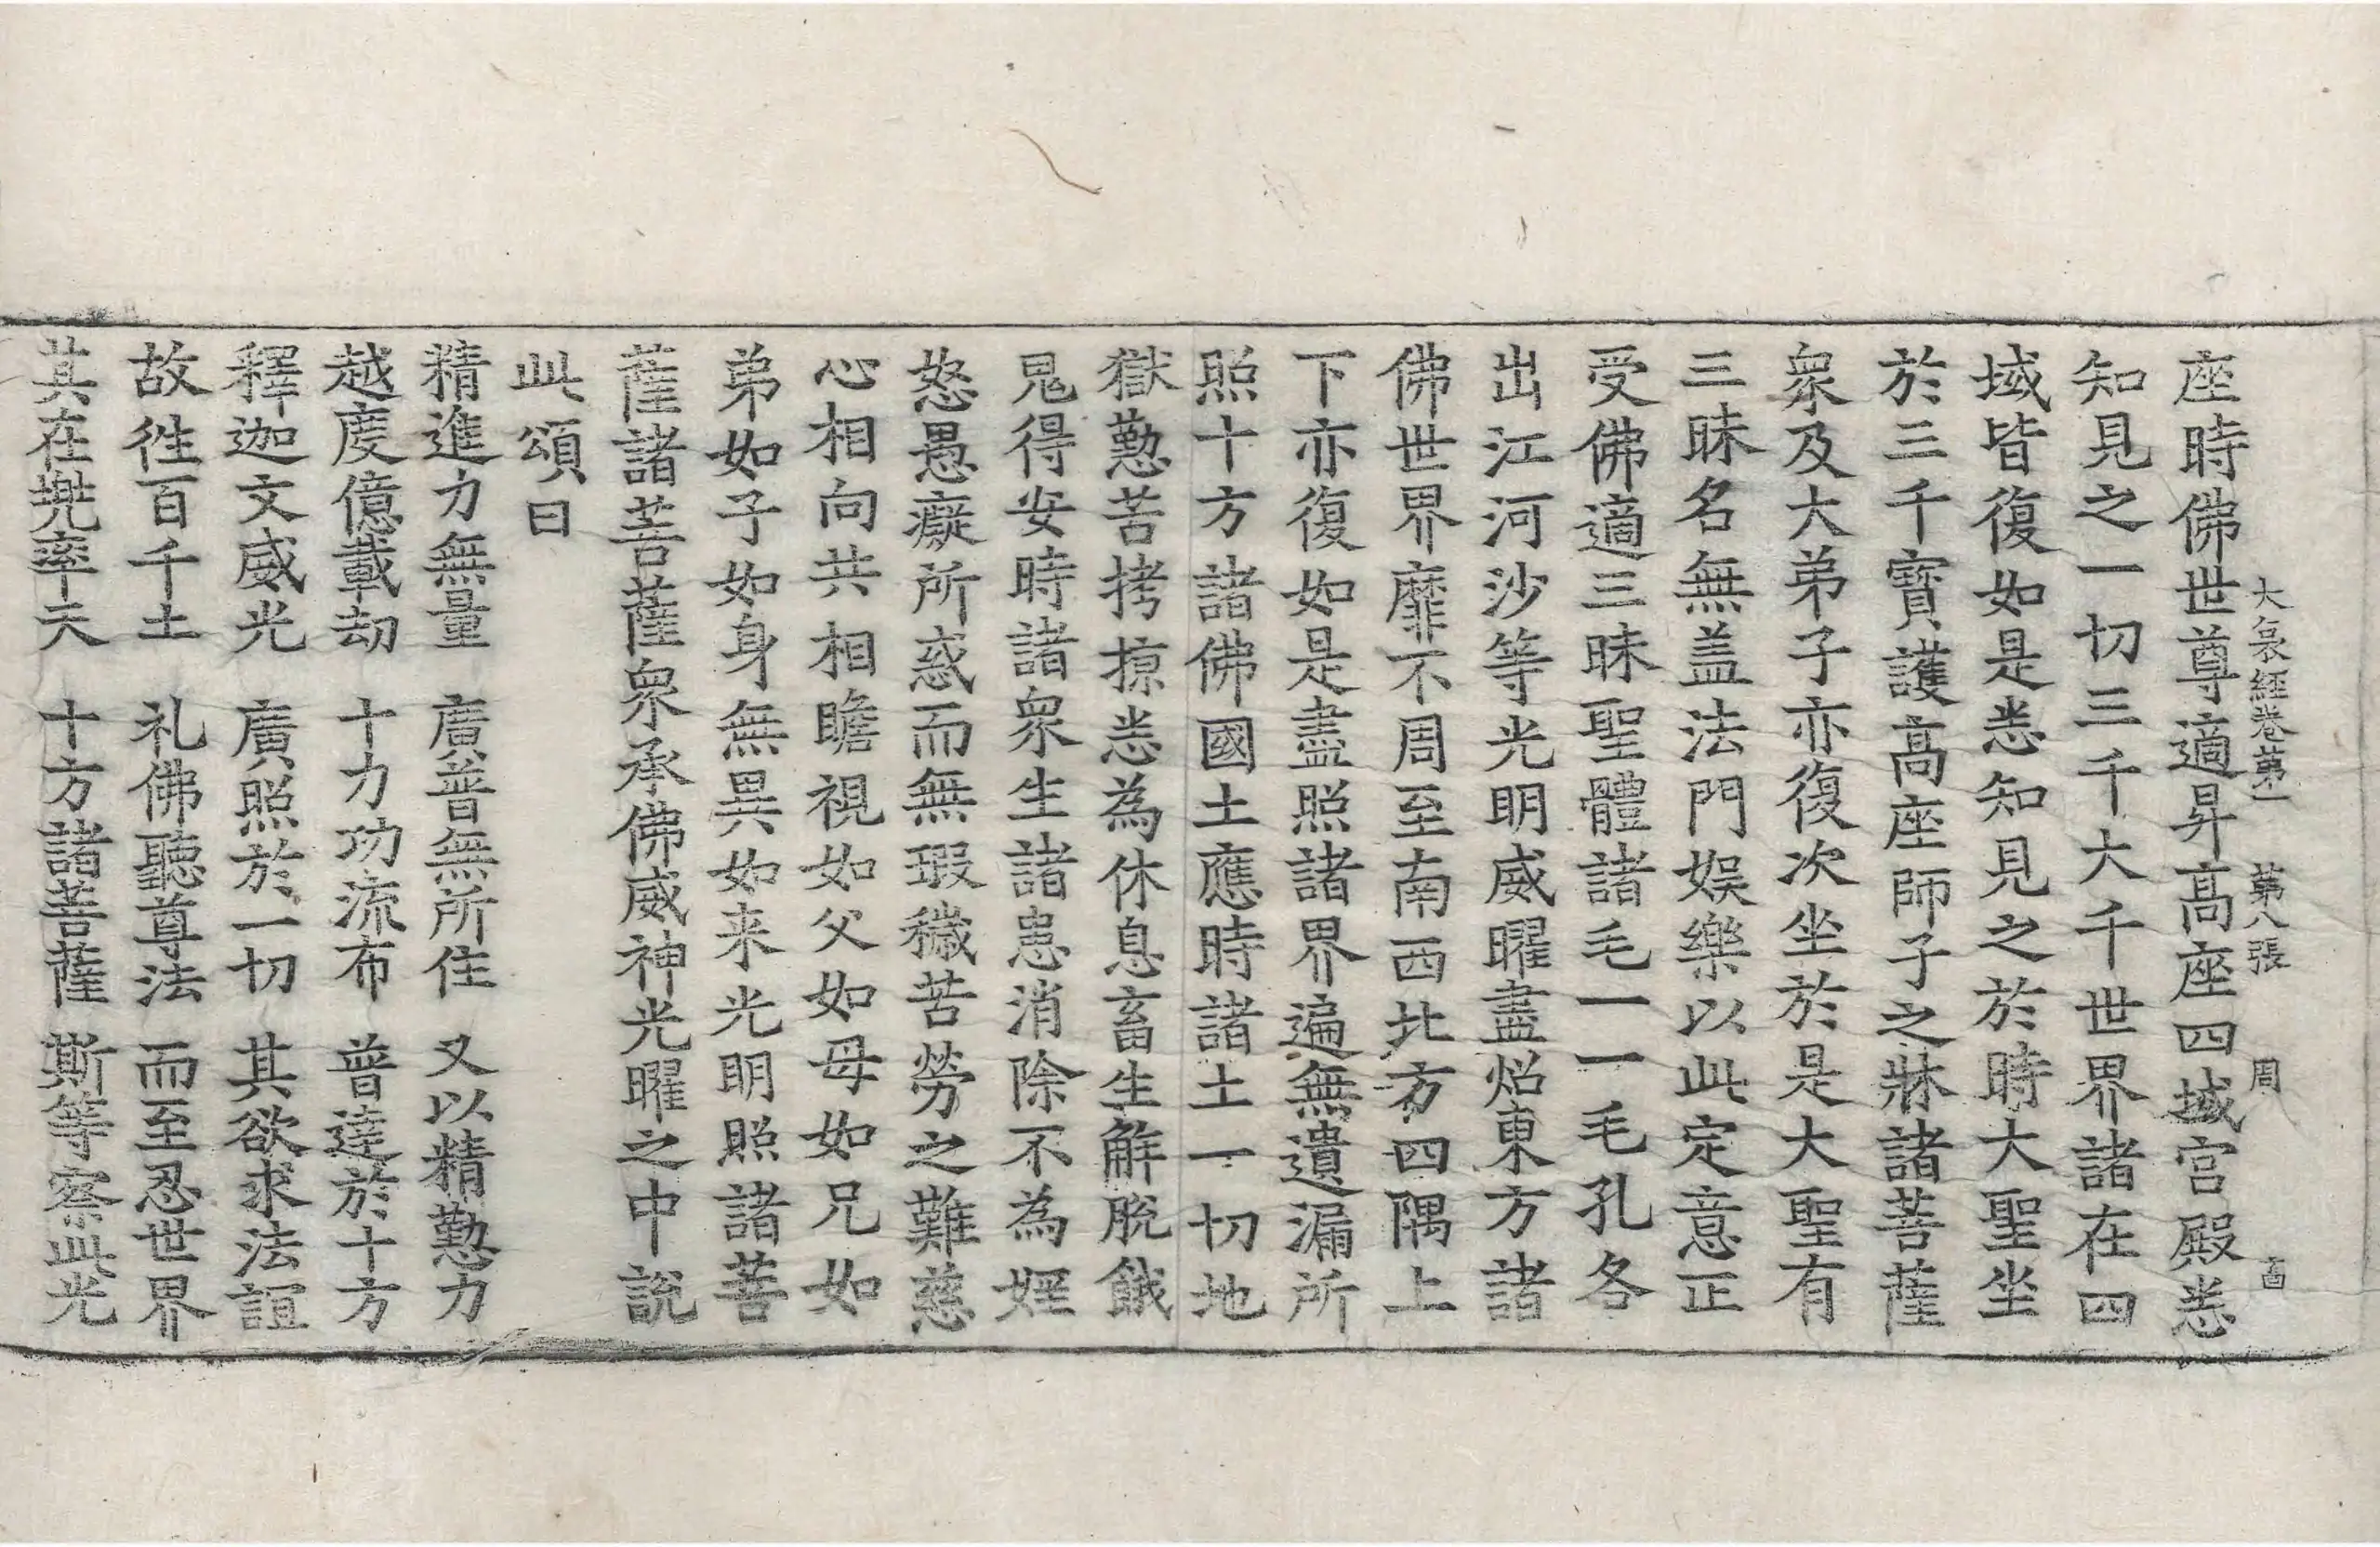 大哀經卷第一　第八張　周　啚
座時佛世尊適昇高座四域宫殿悉
知見之一切三千大千世界諸在四
域皆復如是悉知見之於時大聖坐
於三千寶護高座師子之牀諸菩薩
衆及大弟子亦復次坐於是大聖有
三昧名無盖法門娱樂以此定意正
受佛適三昧聖體諸毛一一毛孔各
出江河沙等光明威曜盡炤東方諸
佛世界靡不周至南西北方四隅上
下亦復如是盡照諸界遍無遺漏所
照十方諸佛國土應時諸土一切地
獄懃苦拷掠悉為休息畜生解脫餓
鬼得安時諸衆生諸患消除不為婬
怒愚癡所惑而無瑕穢苦勞之難慈
心相向共相瞻視如父如母如兄如
弟如子如身無異如来光明照諸菩
薩諸菩薩衆承佛威神光曜之中說
此頌曰
精進力無量　廣普無所住　又以精懃力
越度億載劫　十力功流布　普達於十方
釋迦文威光　廣照於一切　其欲求法誼
故往百千土　礼佛聽尊法　而至忍世界
其在兠率天　十方諸菩薩　斯等察此光